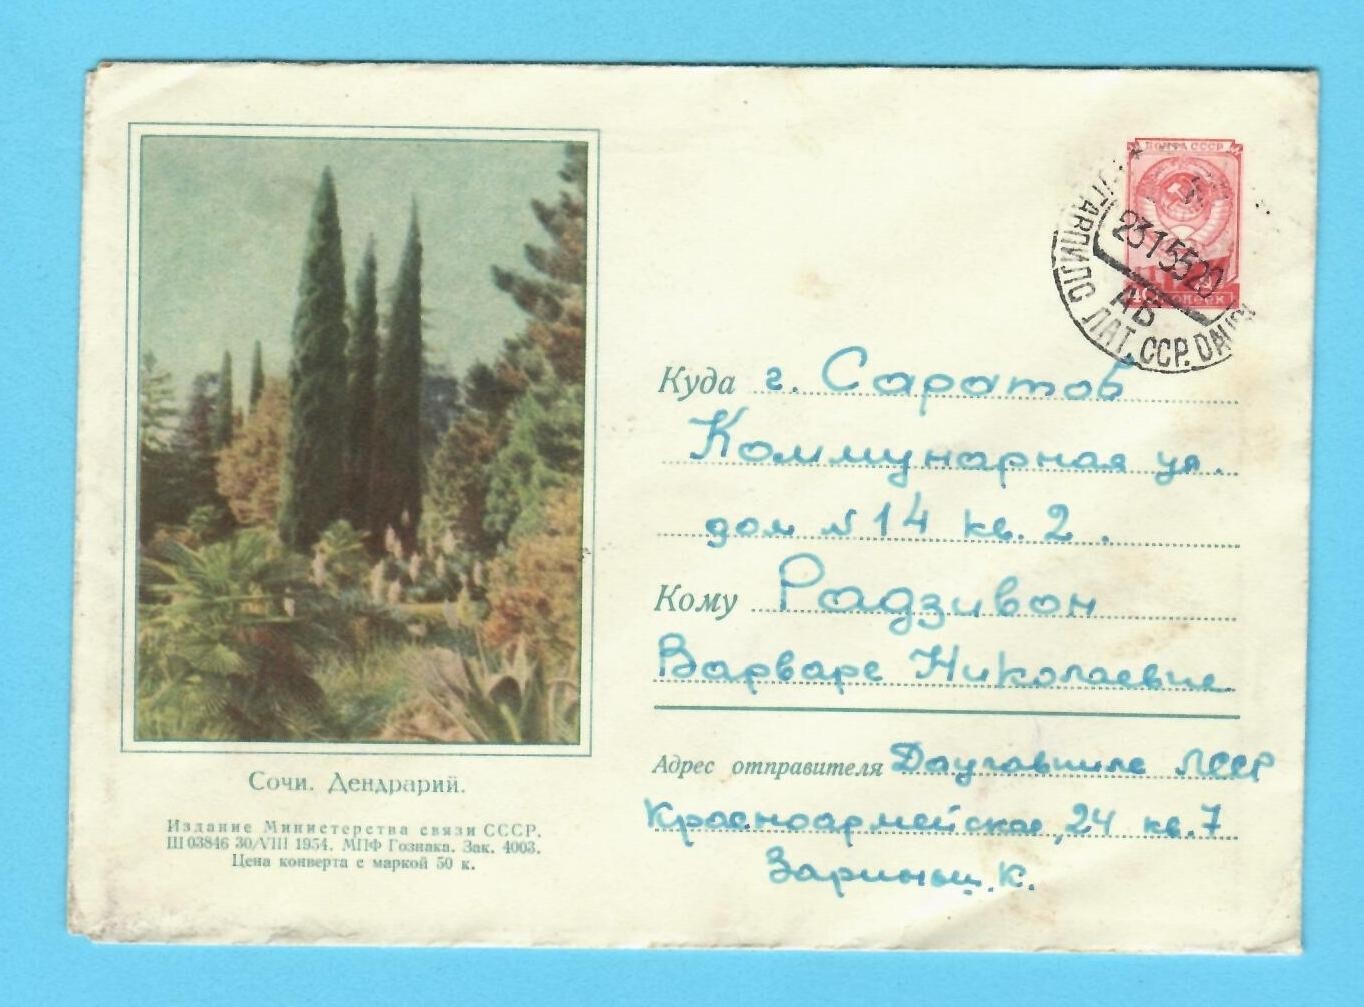 ПОЧТА СССР
40 КОПЕЕК
23 1 55 20
АВ
ЛАТ. ССР.
Куда г. Саратов
Коммунарная ул.
дом N 14 кв. 2.
Кому Радзивон
Варваре Николаевне
Адрес отправителя Даугавпилс ЛССР
Красноармейская, 24 кв. 7
К.
Сочи. Дендрарий.
Издание Министерства связи СССР.
Ш 03846 30/VIII 1954. МПФ Гознака. Зак. 4003.
Цена конверта с маркой 50 к.